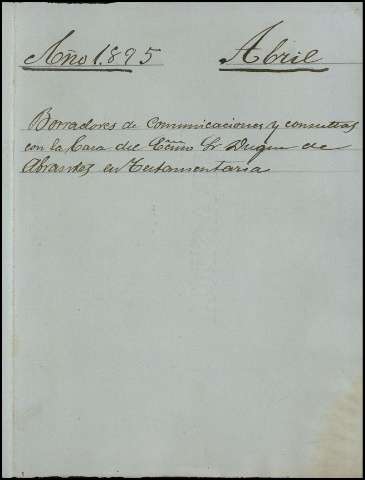 Año 1.895 Abril
Borradores de comunicaciones y consultas
con la Casa del Ecmo Sr Duque de
Abrantes en Testamentaria